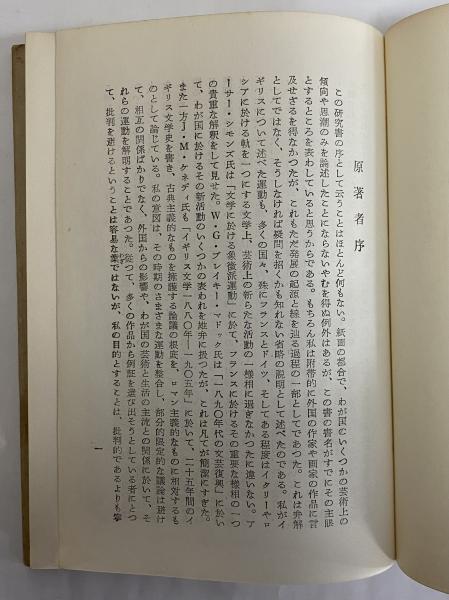 原著者序
この研究書の序として云うことはほとんど何もない。紙面の都合で、わが国のいくつかの芸術上の
傾向や思潮のみを論述したことにならないやむを得ぬ例外はあるが、この書の書名がすでにその主眼
とするところを表わしていると思うからである。もちろん私は附帯的に外国の作家や画家の作品に言
及せざるを得なかつたが、これもただ発展の起源と線を辿る過程の一部としてであつた。これは弁解
としてではなく、そうしなければ疑問を招くかも知れない省略の説明として述べたのである。私がイ
ギリスについて述べた運動も、多くの国々、殊にフランスとドイツ、そしてある程度はイタリーやロ
シアに於ける軌を一つにする文学上、芸術上の新らたな活動の一様相に過ぎなかつたに違いない。ア
ーサー・シモンズ氏は「文学に於ける象徴派運動」に於て、フランスに於けるその重要な様相の一つ
の貴重な解釈をして見せた。W・G・ブレイキー・マドック氏は「一八九〇年代の文芸復興」に於い
て、わが国に於けるその新活動のいくつかの表われを雄弁に扱つたが、これは凡てが簡潔にすぎた。
また一方J・M・ケネディ氏も「イギリス文学一八八〇年—一九〇五年」に於いて、二十五年間のイ
ギリス文学史を書き、古典主義的なものを擁護する論議の根底を、ロマン主義的なものに相対するも
のとして論じている。私の意図は、その時期のさまざまな運動を綜合し、部分的限定的な論議は避け
て、相互の関係ばかりでなく、外国からの影響や、わが国の芸術と生活の主流との関係に於いて、そ
れらの運動を解明することであつた。従つて、多くの作品から例証を選び出そうとしている者にとつ
て、批判を避けるということは容易な業ではないが、私の目的とするところは、批判的であるよりも寧
一